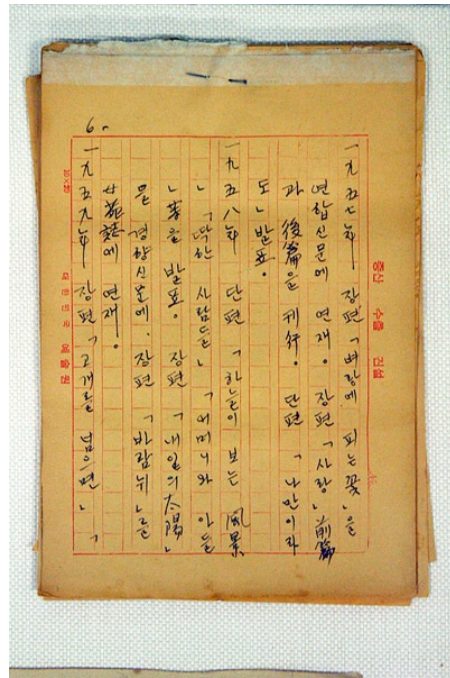 증산 수출 건설
一九五七年 장편「벼랑에 피는 꽃」을
연합신문에 연재。장편「사랑」前篇
과 後篇을 刊行。단편「나만이라
도」발표。
一九五八年 단편「하늘이 보는 風景
」「딱한 사람들」「어머니와 아들
」等을 발표。장편「내일의 太陽」
을 경향신문에、장편「바람뉘」를
에 연재。
一九五九年 장편「고개를 넘으면」、「
6.
대한민국 예술원